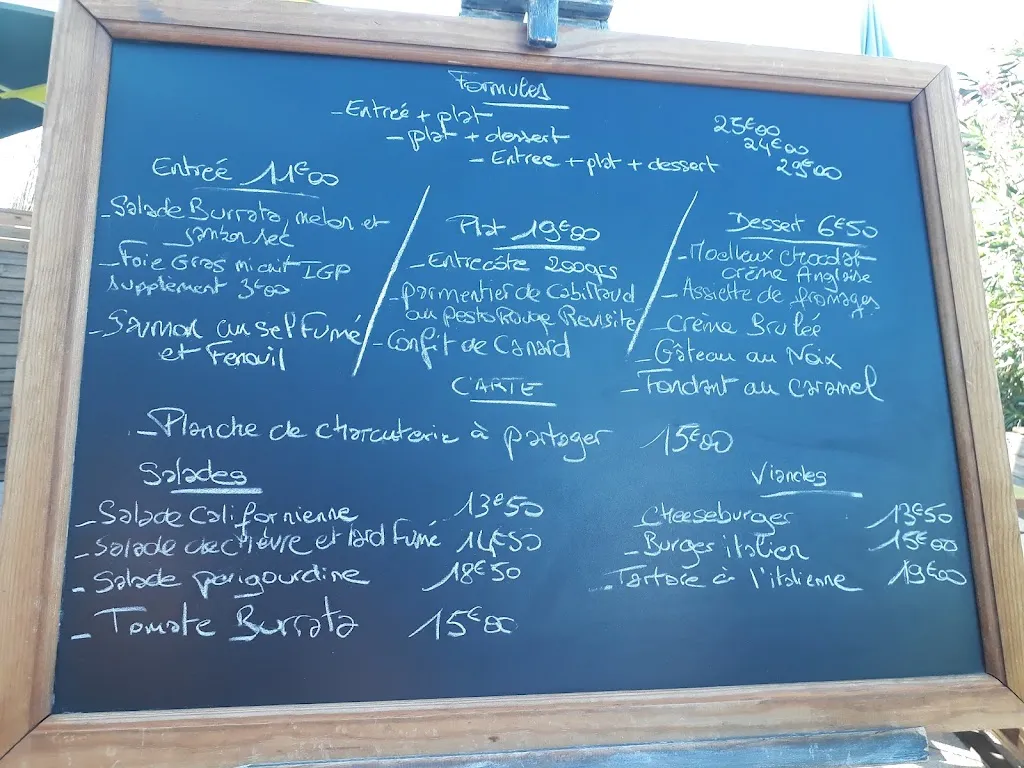 Formules
- Entreé + plat 25€00
- plat + dessert 24€00
- Entree + plat + dessert 29€00
Entreé 11€00
- Salade Burrata, melon et
jambon sec
- Foie Gras mi cuit IGP
supplement 3€00
- Saumon au sel Fumé
et Fenouil
Plat 19€00
- Entrecôte 200grs
- parmentier de Cabillaud
au pesto Rouge Revisité
- Confit de Canard
Dessert 6€50
- Moelleux chocolat
crème Anglaise
- Assiette de fromages
- Crème Brulée
- Gâteau au Noix
- Fondant au caramel
CARTE
- Planche de charcuterie à partager 15€00
Salades
- Salade Californienne 13€50
- Salade de chèvre et lard Fumé 14€50
- Salade perigourdine 18€50
- Tomate Burrata 15€00
Viandes
- Cheeseburger 13€50
- Burger italien 15€00
- Tartare à l'italienne 19€00